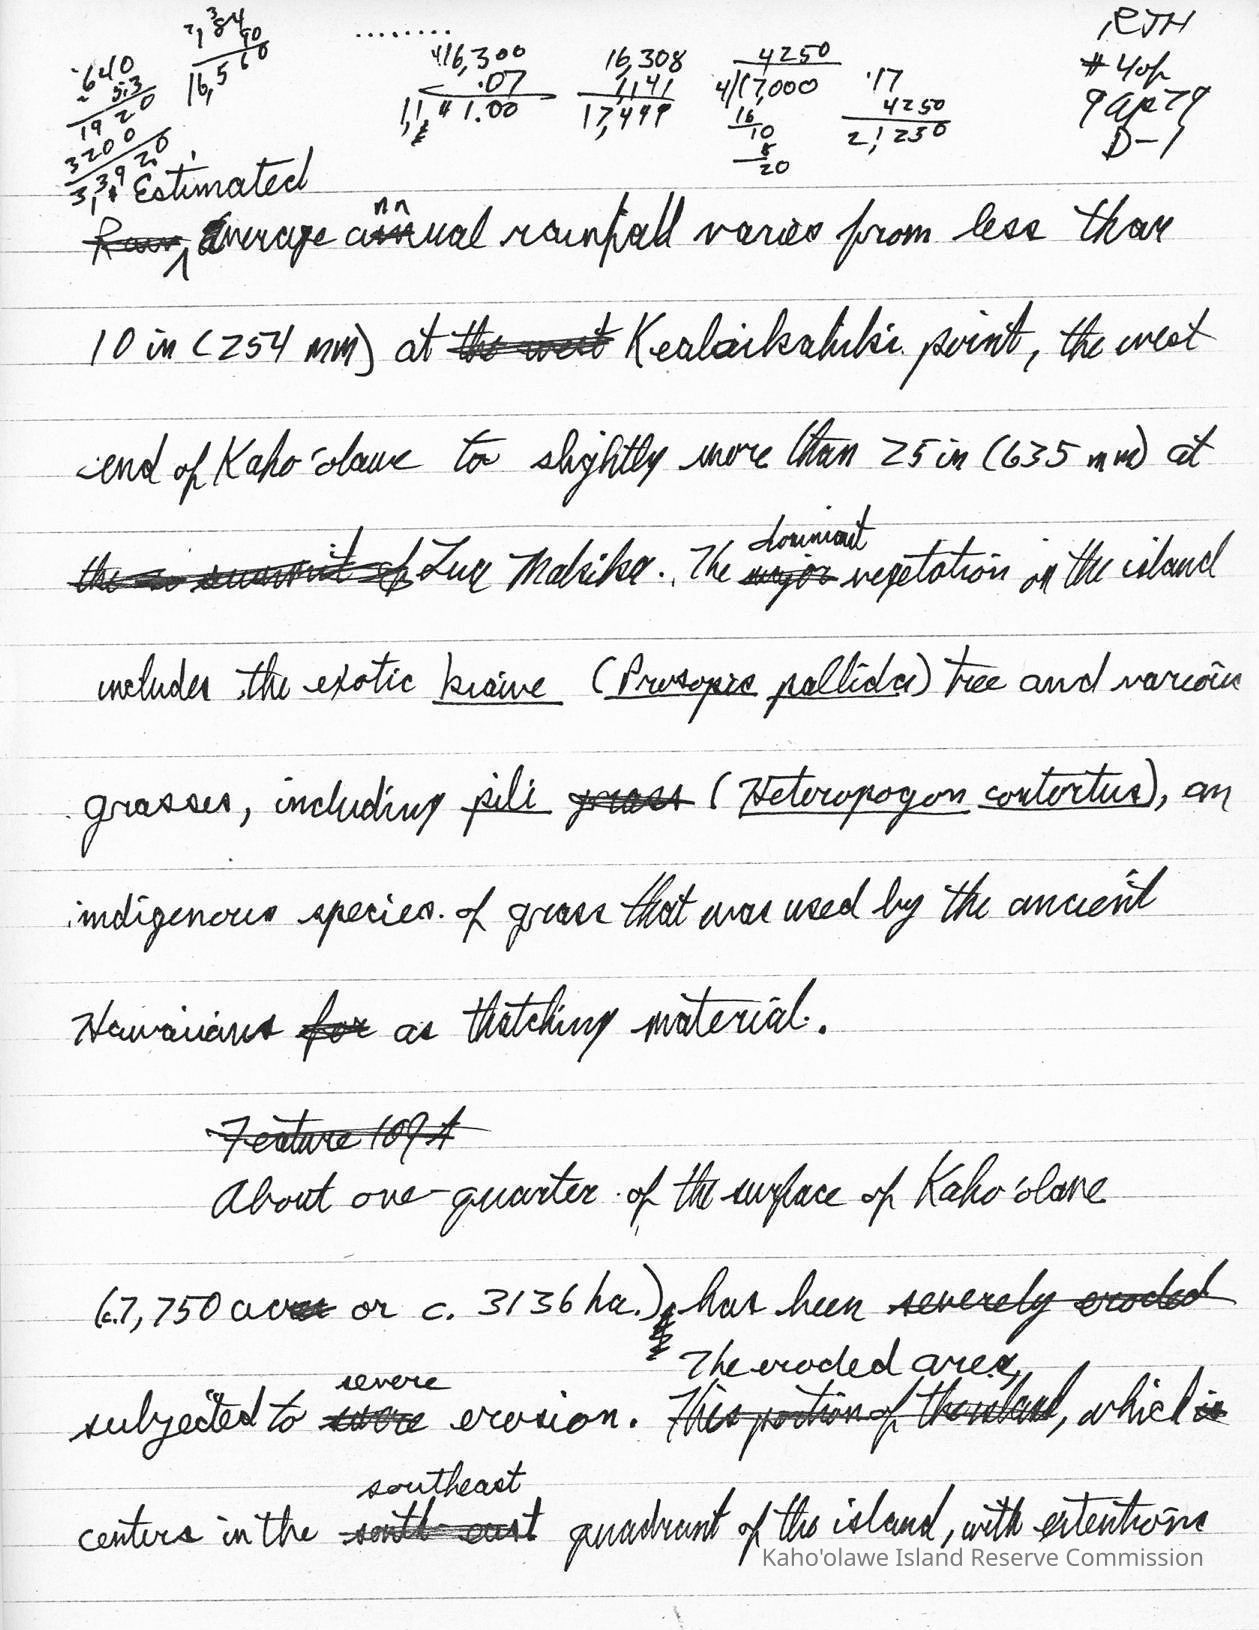 RJH
#4 of
9 Ap 79
D-1
640
5.3
19 20
3200
3,39 2.0
2,384
90
16,560
416,300
.07
1,141.00
16,308
1,141
17,449
4250
4/17,000
16
10
8
20
.17
4250
21250
Estimated
average annual rainfall varies from less than
10 in (254 mm) at the west Kealaikahiki point, the west
end of Kaho'olawe to slightly more than 25 in (635 mm) at
dominant
the summit of Lua Makika. The major vegetation on the island
includes the exotic kiawe (Prosopis pallida) tree and various
grasses, including pili grass (Heteropogon contortus), an
indigenous species of grass that was used by the ancient
Hawaiians for as thatching material.
Feature 109 A
About one-quarter of the surface of Kaho'olawe
(c.7,750 acres or c. 3136 ha.) has been severely eroded
The eroded area,
severe
subjected to erosion. This portion of the island, which is
southeast
centers in the south east quadrant of the island, with extentions
Kaho'olawe Island Reserve Commission